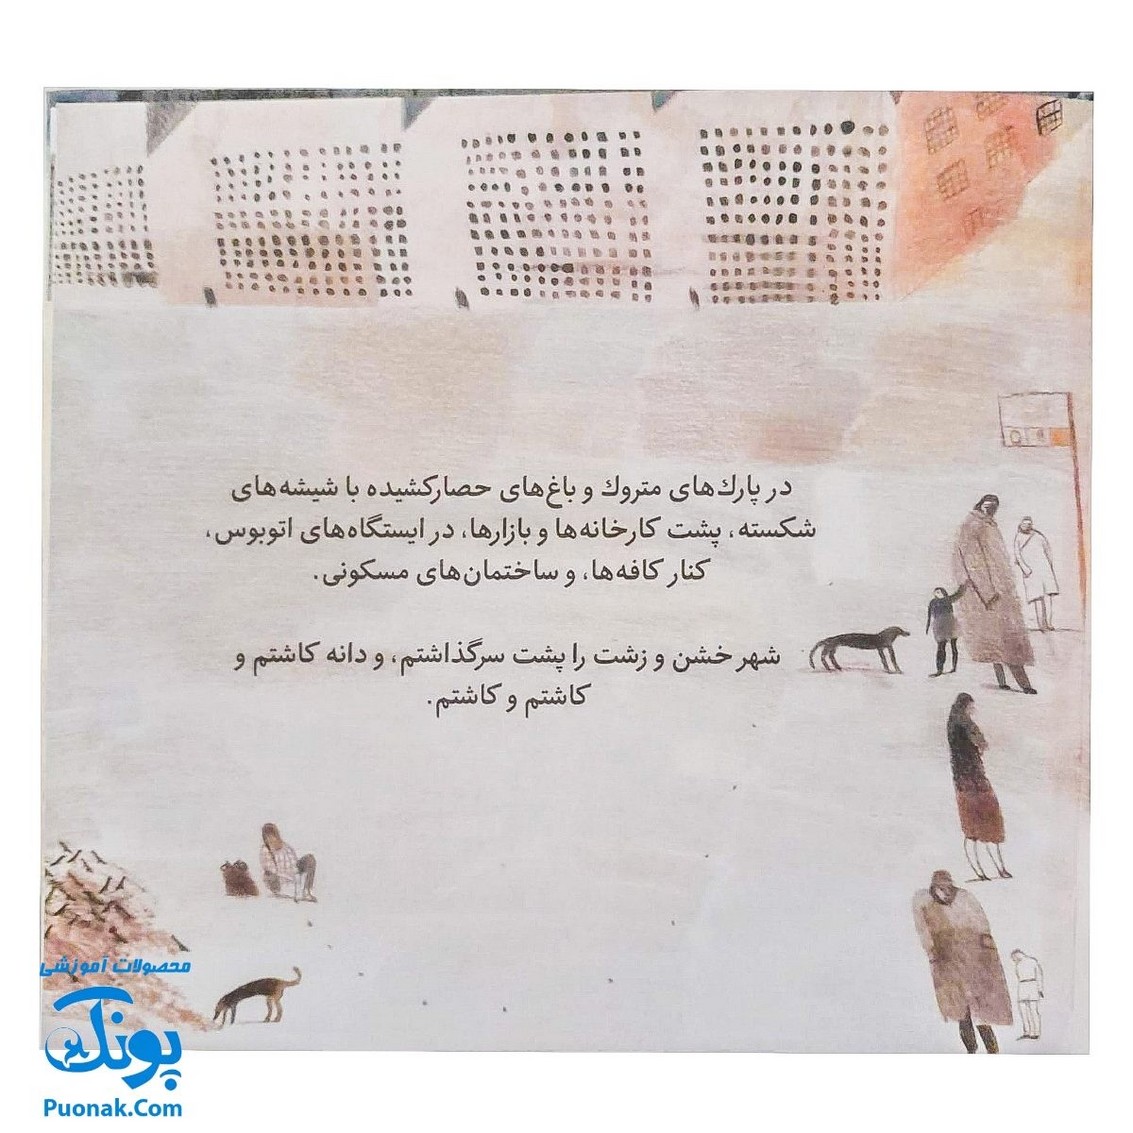 در پارك‌های متروك و باغ‌های حصارکشیده با شیشه‌های
شکسته، پشت کارخانه‌ها و بازارها، در ایستگاه‌های اتوبوس،
کنار کافه‌ها، و ساختمان‌های مسکونی.
شهر خشن و زشت را پشت سرگذاشتم، و دانه کاشتم و
کاشتم و کاشتم.
محصولات آموزشی
پونک
Puonak.Com